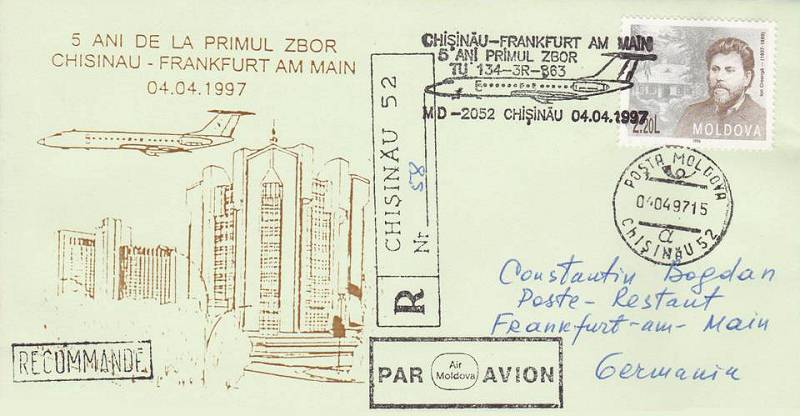 5 ANI DE LA PRIMUL ZBOR
CHISINAU - FRANKFURT AM MAIN
04.04.1997
CHIȘINĂU-FRANKFURT AM MAIN
5 ANI PRIMUL ZBOR
TU 134-3R-863
MD-2052 CHIȘINĂU 04.04.1997
2.20L MOLDOVA
Ion Creangă
POȘTA MOLDOVA
04049715
a
CHIȘINĂU 52
R CHIȘINĂU 52
Nr. 85
Constantin Bogdan
Poste-Restant
Frankfurt-am-Main
Germania
RECOMMANDE
PAR Air Moldova AVION